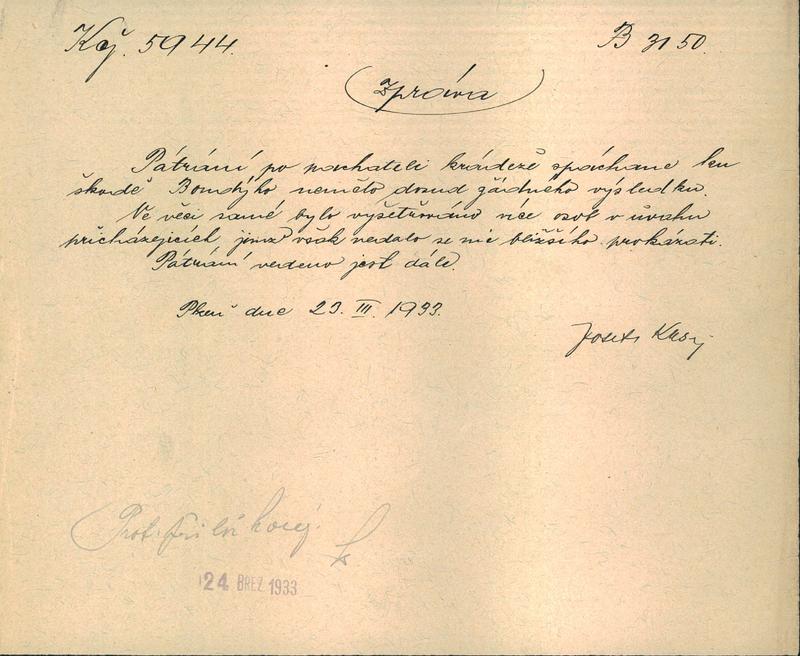 5944. B 3150.
Zpráva
Pátrání po pachateli krádeže spáchane ku
škodě Bondyho nemělo dosud žádného výsledku.
Ve věci samé bylo vyšetřováno více osob v úvahu
přicházejících, jimž však nedalo se nic bližšího prokázati.
Pátrání vedeno jest dále.
Plzeň dne 23. III. 1933.
Josef
24 BŘEZ. 1933